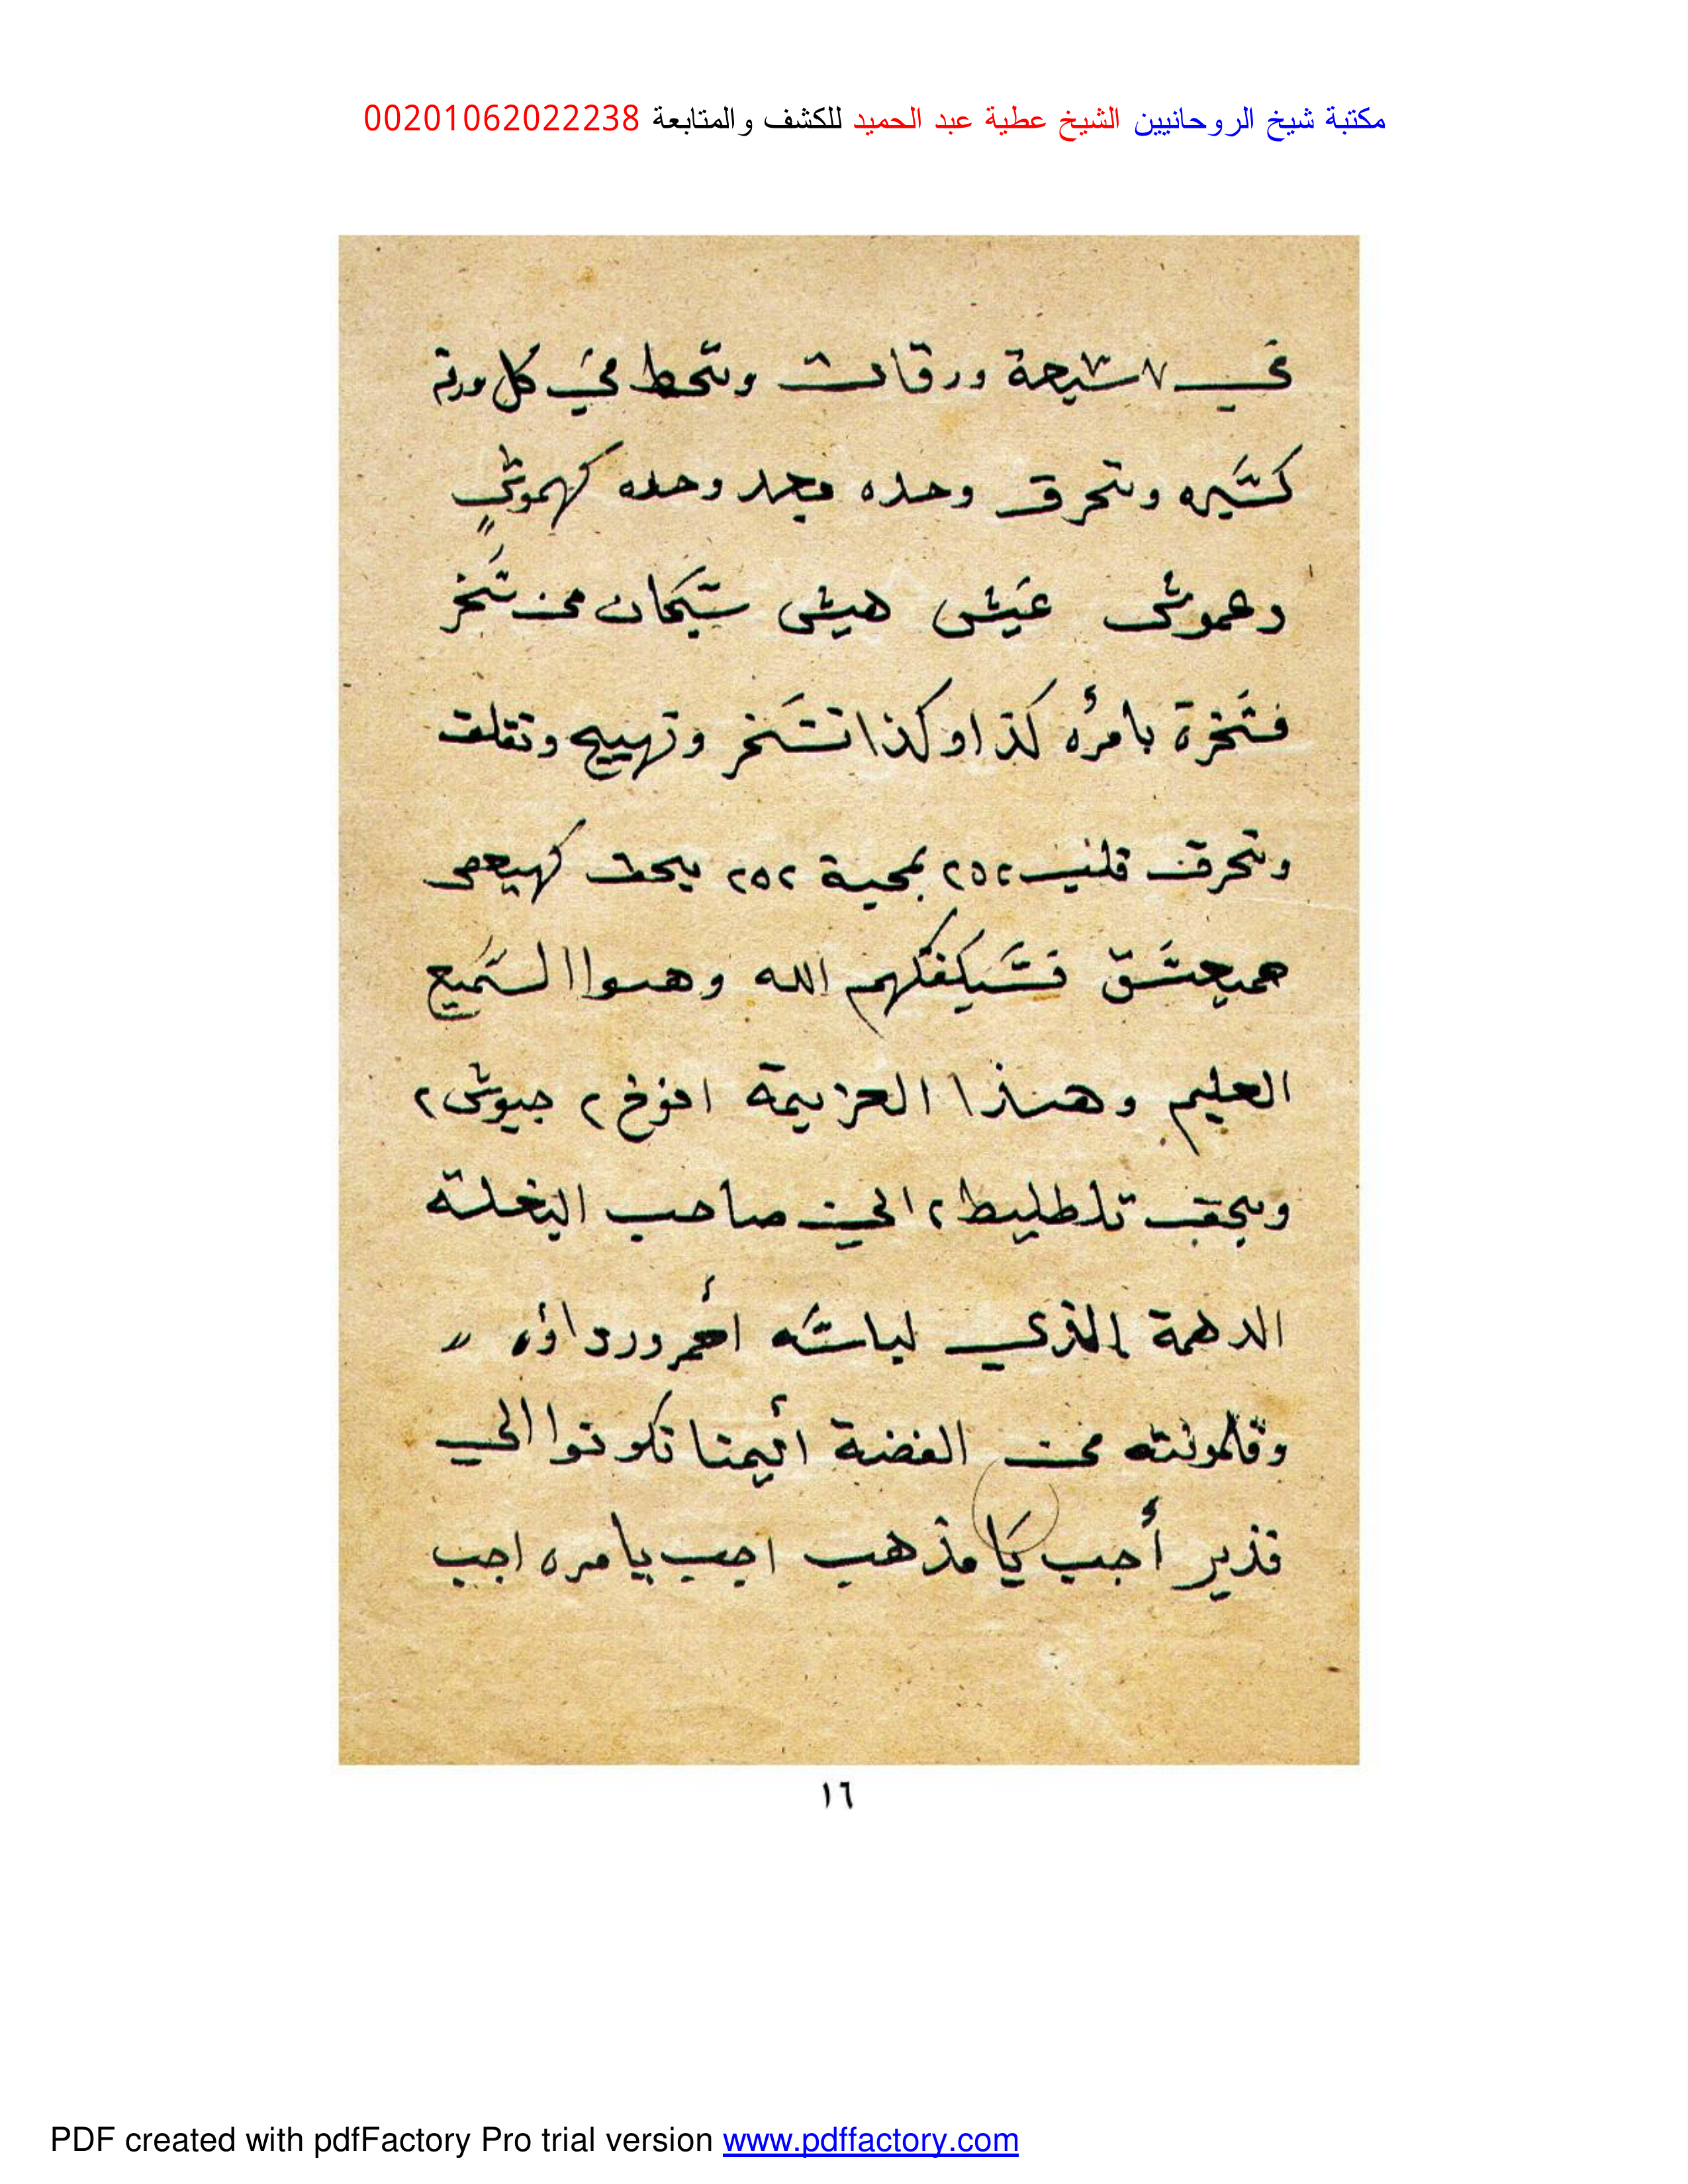 مكتبة شيخ الروحانيين الشيخ عطية عبد الحميد للكشف والمتابعة 00201062022238
في ٧ سبعة ورقات وتحط في كل ورقة
كسيره وتحرق وحده بعد وحده كهموش
دعموش عيش هيش سبحان من سخر
فسخرة بأمره كذا وكذا تسخر وتهييج وتقلق
وتحرق قلب ٢٥٢ بمحبة ٢٥٢ بحق كهيعص
حمعسق فسيكفكهم الله وهوا السميع
العليم وهذا العزيمة افوخ ٢ جيوش ٢
وبحق تلطليط ٢ الي صاحب البغلة
الدهمة الذي لباسه أحمر ورداؤه "
وقلمونته من الفضة أينما تكونوا الي
قذير أجب يا مذهب اجب يا مره اجب
١٦
PDF created with pdfFactory Pro trial version www.pdffactory.com